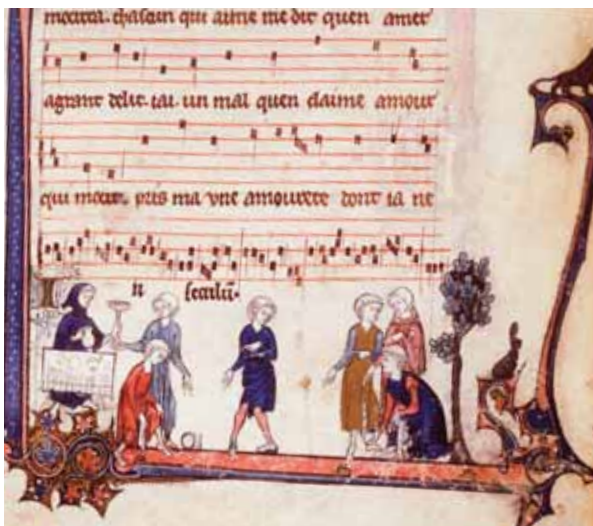 mocirra. chascun qui aime me dit quen amer
agrant delit. iai. un mal quen claime amour
qui mocirt. pris ma une amourete dont ia ne
In seculū.